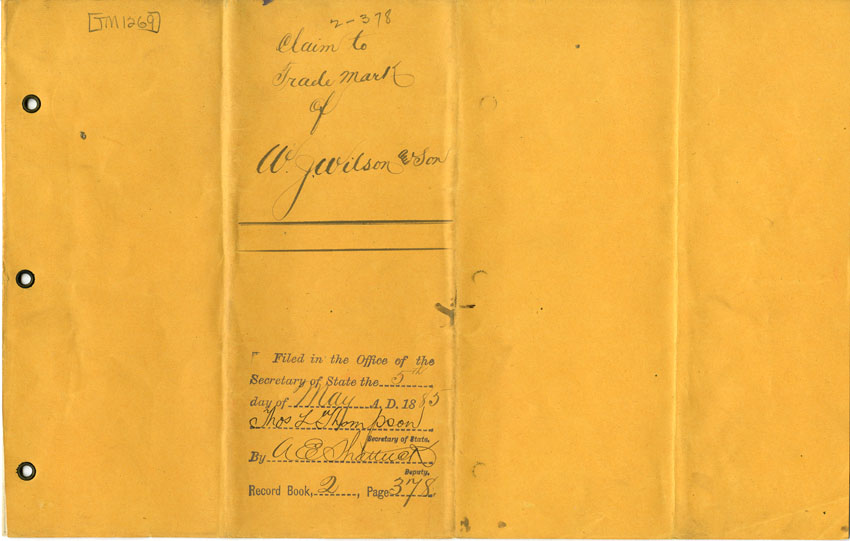 [TM1269]
2-378
Claim to
Trade Mark
of
W. J. Wilson & Son
Filed in the Office of the
Secretary of State the 5th
day of May A. D. 1885
Thos L Thompson
Secretary of State.
By A E Shattuck
Deputy.
Record Book, 2, Page 378